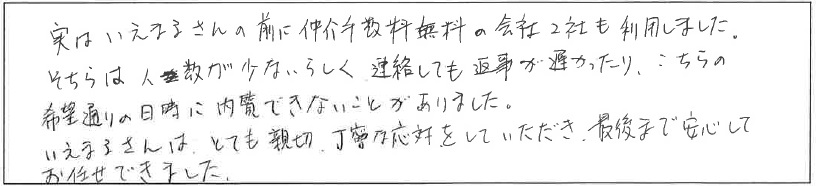 実はいえまるさんの前に仲介手数料無料の会社2社も利用しました。
そちらは人数が少ないらしく、連絡しても返事が遅かったり、こちらの
希望通りの日時に内覧できないことがありました。
いえまるさんは、とても親切、丁寧な応対をしていただき、最後まで安心して
お任せできました。